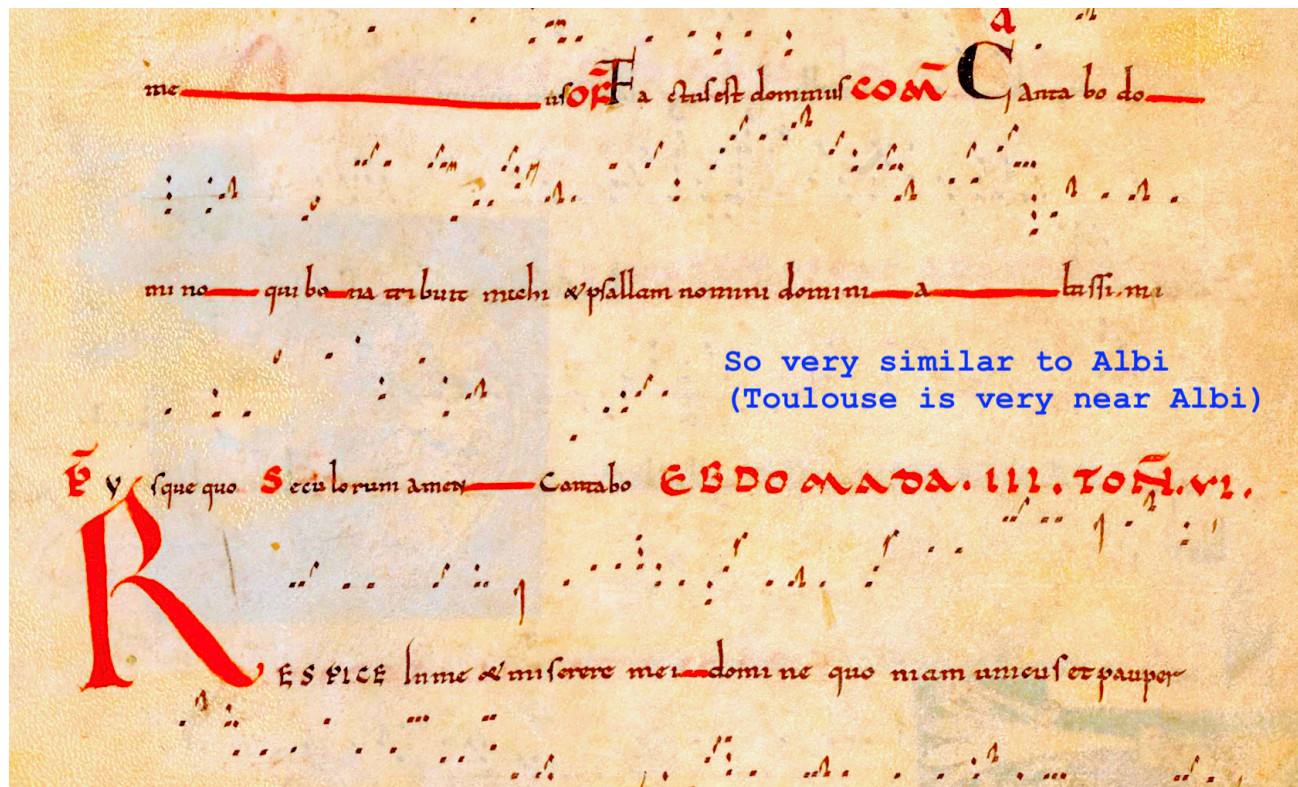 a
me us OF̄ Factus est dominus COM̄ Cantabo do
mino qui bona tribuit michi & psallam nomini domini altissimi
So very similar to Albi
(Toulouse is very near Albi)
P̄ Vsquequo Seculorum amen Cantabo EBDOMADA.III.TOÑ.VI.
RESPICE Inme & miserere mei domine quoniam unicus et pauper